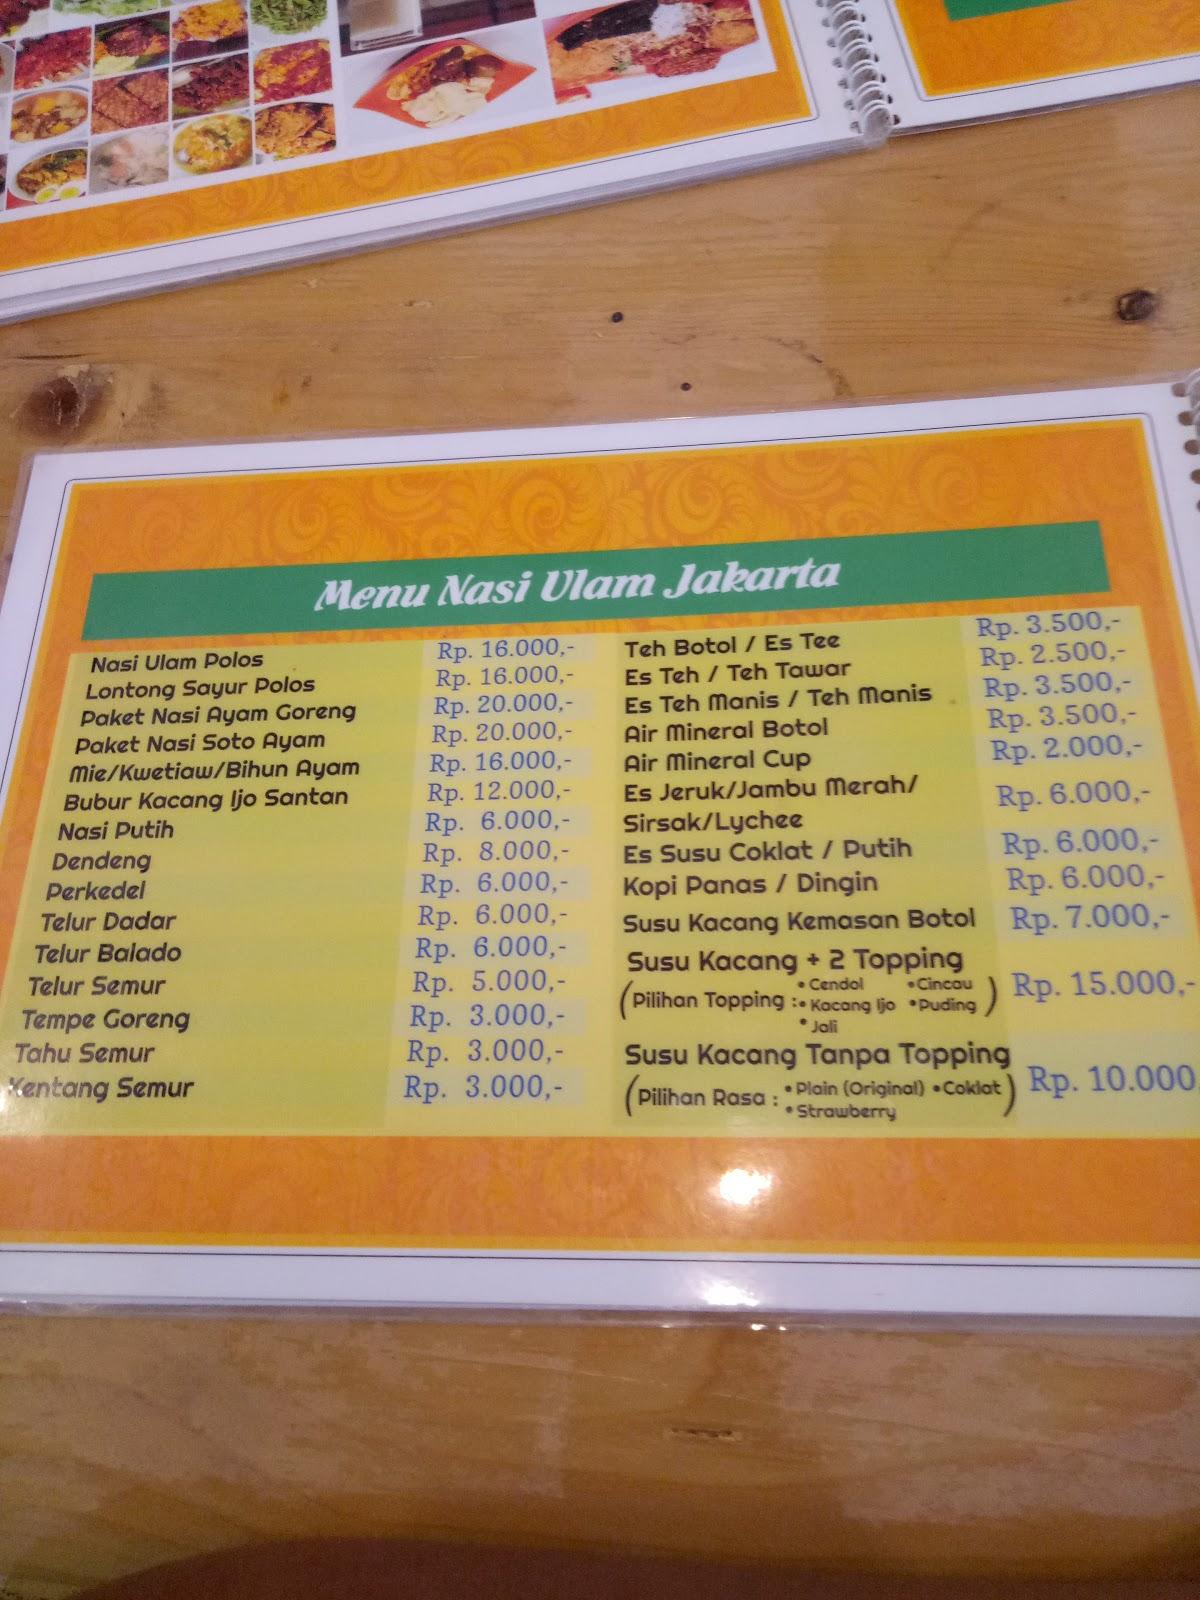 Menu Nasi Ulam Jakarta
Nasi Ulam Polos Rp. 16.000,-
Lontong Sayur Polos Rp. 16.000,-
Paket Nasi Ayam Goreng Rp. 20.000,-
Paket Nasi Soto Ayam Rp. 20.000,-
Mie/Kwetiaw/Bihun Ayam Rp. 16.000,-
Bubur Kacang Ijo Santan Rp. 12.000,-
Nasi Putih Rp. 6.000,-
Dendeng Rp. 8.000,-
Perkedel Rp. 6.000,-
Telur Dadar Rp. 6.000,-
Telur Balado Rp. 6.000,-
Telur Semur Rp. 5.000,-
Tempe Goreng Rp. 3.000,-
Tahu Semur Rp. 3.000,-
Kentang Semur Rp. 3.000,-
Teh Botol / Es Tee Rp. 3.500,-
Es Teh / Teh Tawar Rp. 2.500,-
Es Teh Manis / Teh Manis Rp. 3.500,-
Air Mineral Botol Rp. 3.500,-
Air Mineral Cup Rp. 2.000,-
Es Jeruk/Jambu Merah/
Sirsak/Lychee Rp. 6.000,-
Es Susu Coklat / Putih Rp. 6.000,-
Kopi Panas / Dingin Rp. 6.000,-
Susu Kacang Kemasan Botol Rp. 7.000,-
Susu Kacang + 2 Topping Rp. 15.000,-
(Pilihan Topping : • Cendol • Cincau
• Kacang Ijo • Puding )
• Jali
Susu Kacang Tanpa Topping Rp. 10.000
(Pilihan Rasa : • Plain (Original) • Coklat )
• Strawberry